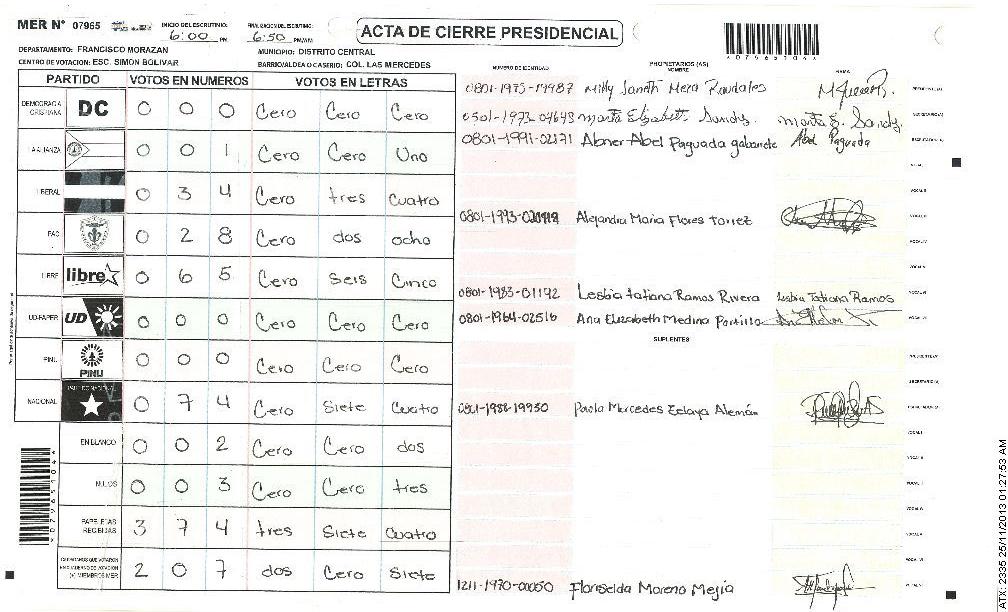 MER N° 07965 INICIO DEL ESCRUTINIO: 6:00 PM FINALIZACION DEL ESCRUTINIO: 6:50 PM/AM
ACTA DE CIERRE PRESIDENCIAL
*07965104*
DEPARTAMENTO: FRANCISCO MORAZAN MUNICIPIO: DISTRITO CENTRAL
CENTRO DE VOTACION: ESC. SIMON BOLIVAR BARRIO/ALDEA O CASERIO: COL. LAS MERCEDES
PARTIDO VOTOS EN NUMEROS VOTOS EN LETRAS
DEMOCRACIA CRISTIANA DC 0 0 0 Cero Cero Cero
LA ALIANZA 0 0 1 Cero Cero Uno
LIBERAL 0 3 4 Cero tres cuatro
PAC 0 2 8 Cero dos ocho
LIBRE libre 0 6 5 Cero Seis Cinco
UD-FAPER UD 0 0 0 Cero Cero Cero
PINU PINU 0 0 0 Cero Cero Cero
NACIONAL PARTIDO NACIONAL 0 7 4 Cero Siete Cuatro
EN BLANCO 0 0 2 Cero Cero dos
NULOS 0 0 3 Cero Cero tres
PAPELETAS RECIBIDAS 3 7 4 tres Siete Cuatro
CIUDADANOS QUE VOTARON EN CUADERNO DE VOTACION (+) MIEMBROS MER 2 0 7 dos Cero Siete
*07965104*
NUMERO DE IDENTIDAD PROPIETARIOS (AS) NOMBRE FIRMA
0801-1975-19987 Milly Janeth Meza Raudales PRESIDENTE(A)
0501-1973-07643 Marta Elizabeth Sandy. Marta E. Sandy. SECRETARIO(A)
0801-1991-02171 Abner Abel Paguada gabarrete Abel Paguada ESCRUTADOR(A)
VOCAL I
VOCAL II
Alejandra Maria Flores Torrez VOCAL III
VOCAL IV
VOCAL V
0801-1983-01192 Lesbia tatiana Ramos Rivera Lesbia Tatiana Ramos VOCAL VI
0801-1964-02516 Ana Elizabeth Medina Portillo VOCAL VII
SUPLENTES
PRESIDENTE(A)
SECRETARIO(A)
0801-1988-19950 Paola Mercedes Ecleya Alemán ESCRUTADOR(A)
VOCAL I
VOCAL II
VOCAL III
VOCAL IV
VOCAL V
VOCAL VI
1211-1970-00050 Floriselda Moreno Mejía VOCAL VII
ATX-2335 25/11/2013 01:27:53 AM